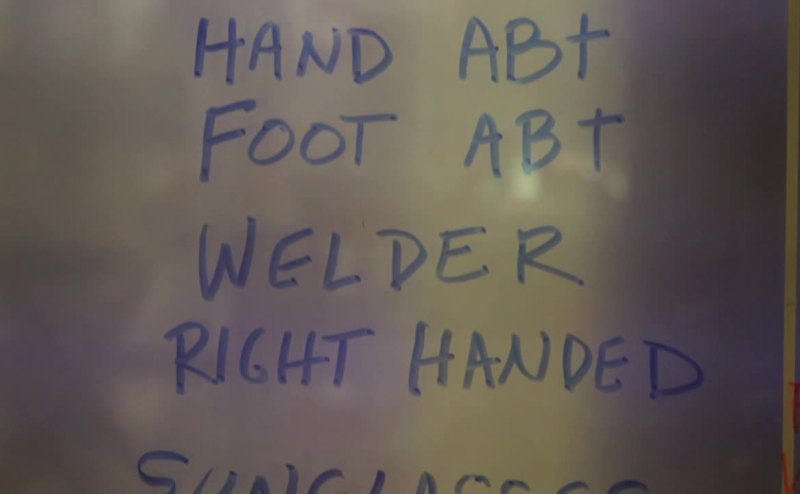 HAND ABT
FOOT ABT
WELDER
RIGHT HANDED
SUNGLASSES